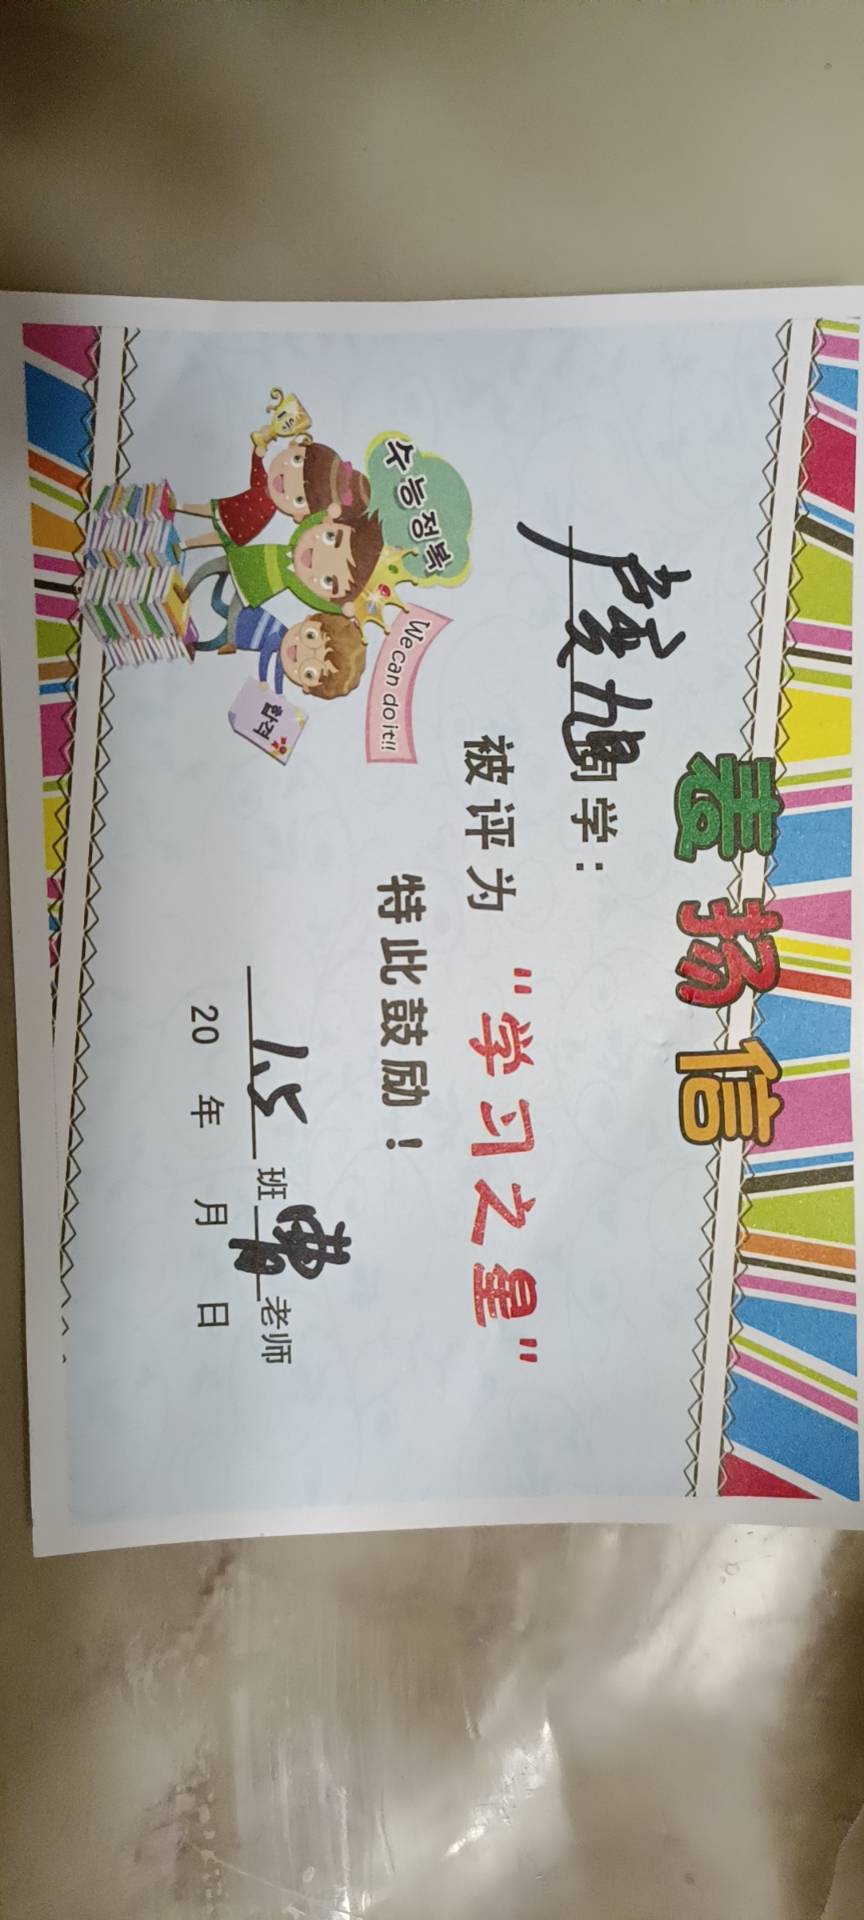 表扬信
同学：
被评为 "学习之星"
特此鼓励！
1.5 班 曹 老师
20 年 月 日
수능정복
We can do it!!
합격